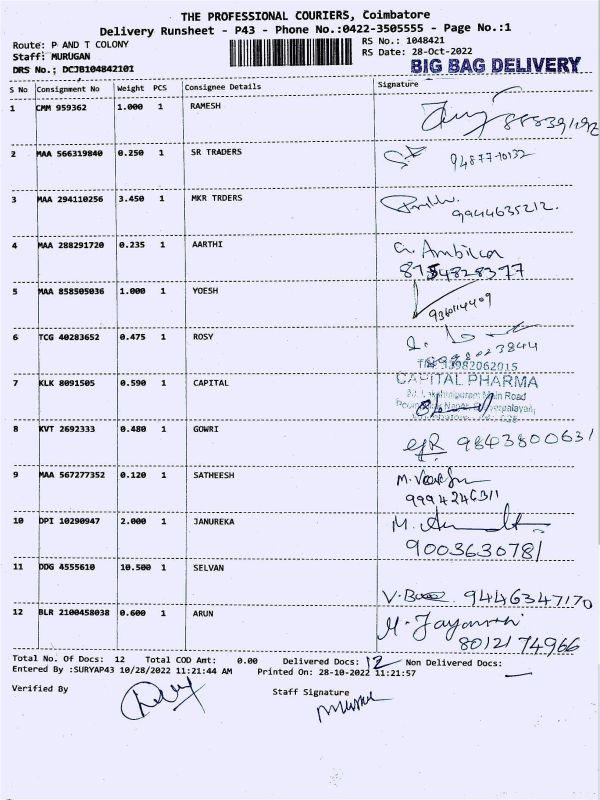 THE PROFESSIONAL COURIERS, Coimbatore
Delivery Runsheet - P43 - Phone No.:0422-3505555 - Page No.:1
Route: P AND T COLONY RS No.: 1048421
Staff: MURUGAN RS Date: 28-Oct-2022
DRS No.; DCJB104842101 BIG BAG DELIVERY
S No Consignment No Weight PCS Consignee Details Signature
1 CMM 959362 1.000 1 RAMESH
2 MAA 566319840 0.250 1 SR TRADERS
94877-10132
3 MAA 294110256 3.450 1 MKR TRDERS
9944635212.
4 MAA 288291720 0.235 1 AARTHI G. Ambika
8754828377
5 MAA 858505036 1.000 1 YOESH
6 TCG 40283652 0.475 1 ROSY
7 KLK 8091505 0.590 1 CAPITAL CAPITAL PHARMA
Main Road
8 KVT 2692333 0.480 1 GOWRI 9843800631
9 MAA 567277352 0.120 1 SATHEESH M.
9994246311
10 DPI 10290947 2.000 1 JANUREKA M.
9003630781
11 DDG 4555610 10.500 1 SELVAN
9446347170
12 BLR 2100458038 0.600 1 ARUN M.
8012174966
Total No. Of Docs: 12 Total COD Amt: 0.00 Delivered Docs: 12 Non Delivered Docs:
Entered By :SURYAP43 10/28/2022 11:21:44 AM Printed On: 28-10-2022 11:21:57
Verified By Staff Signature